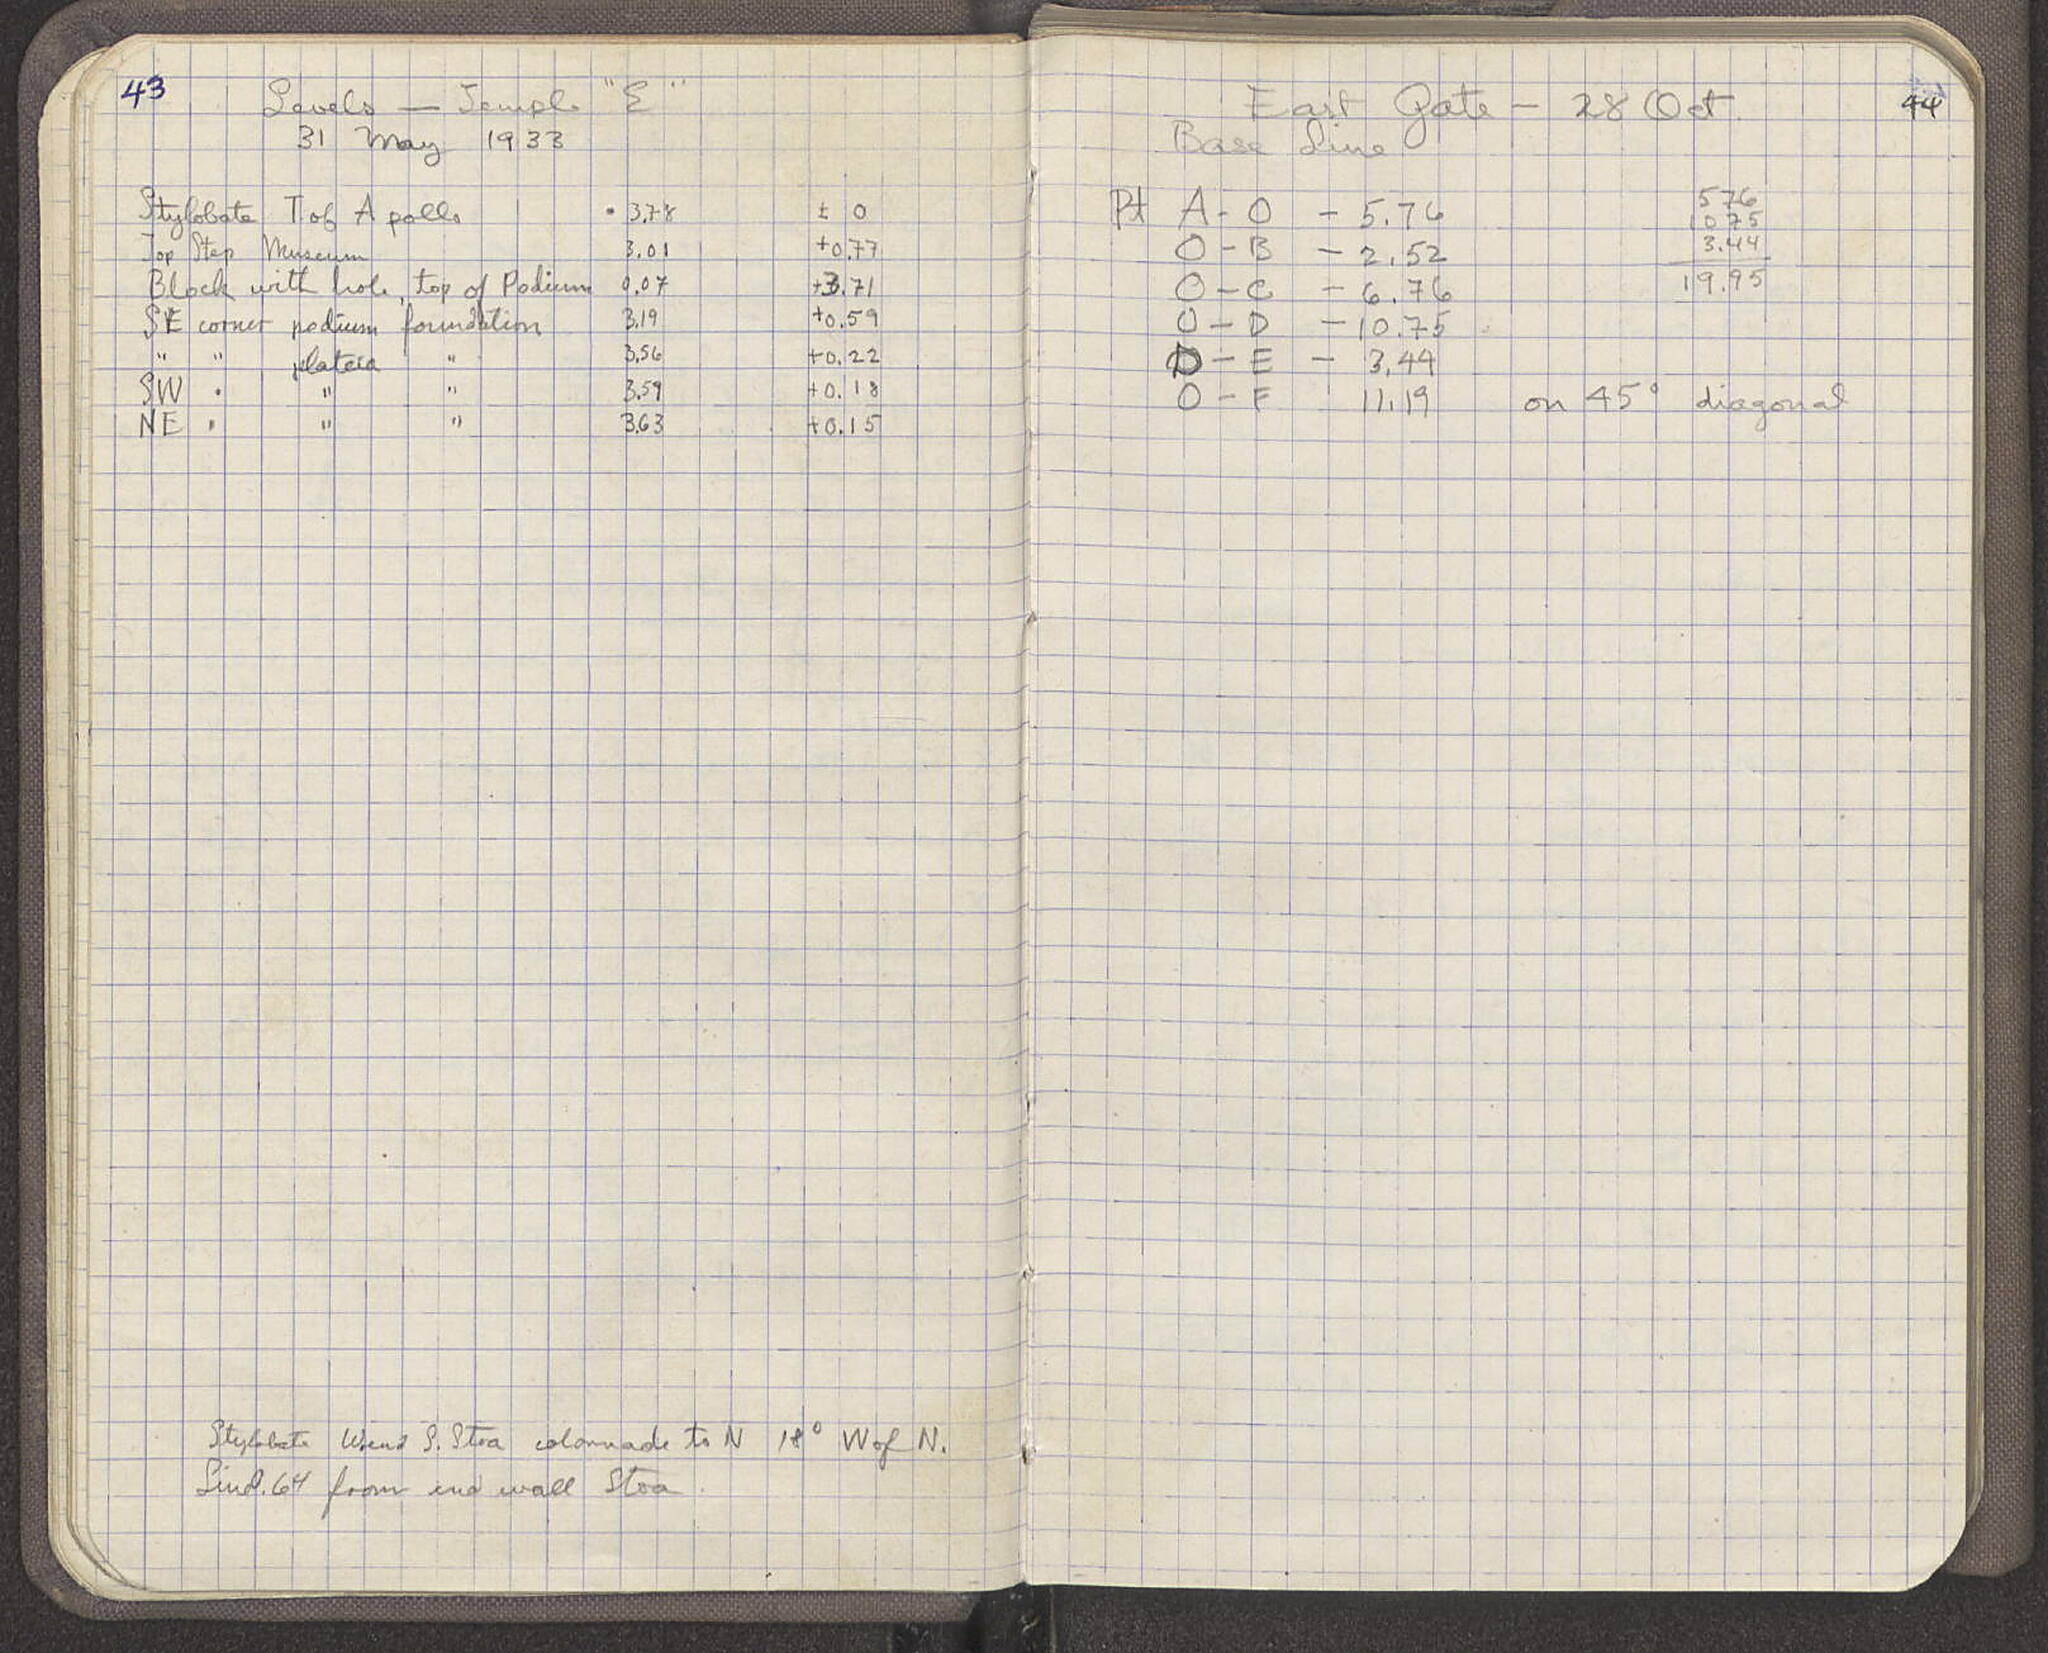 43
Levels — Temple "E"
31 May 1933
Stylobate T of Apollo · 3.78 ± 0
Top Step Museum 3.01 +0.77
Block with hole, top of Podium 0.07 +3.71
SE corner podium foundation 3.19 +0.59
" " plateia " 3.56 +0.22
SW " " " 3.59 +0.18
NE " " " 3.63 +0.15
Stylobate W end S. Stoa colonnade to N 18° W of N.
64 from end wall Stoa.
44
East Gate — 28 Oct.
Base Line
Pt A - O - 5.76
O - B - 2.52
O - C - 6.76
O - D - 10.75
D - E - 3.44
O - F 11.19 on 45° diagonal
576
1075
3.44
19.95